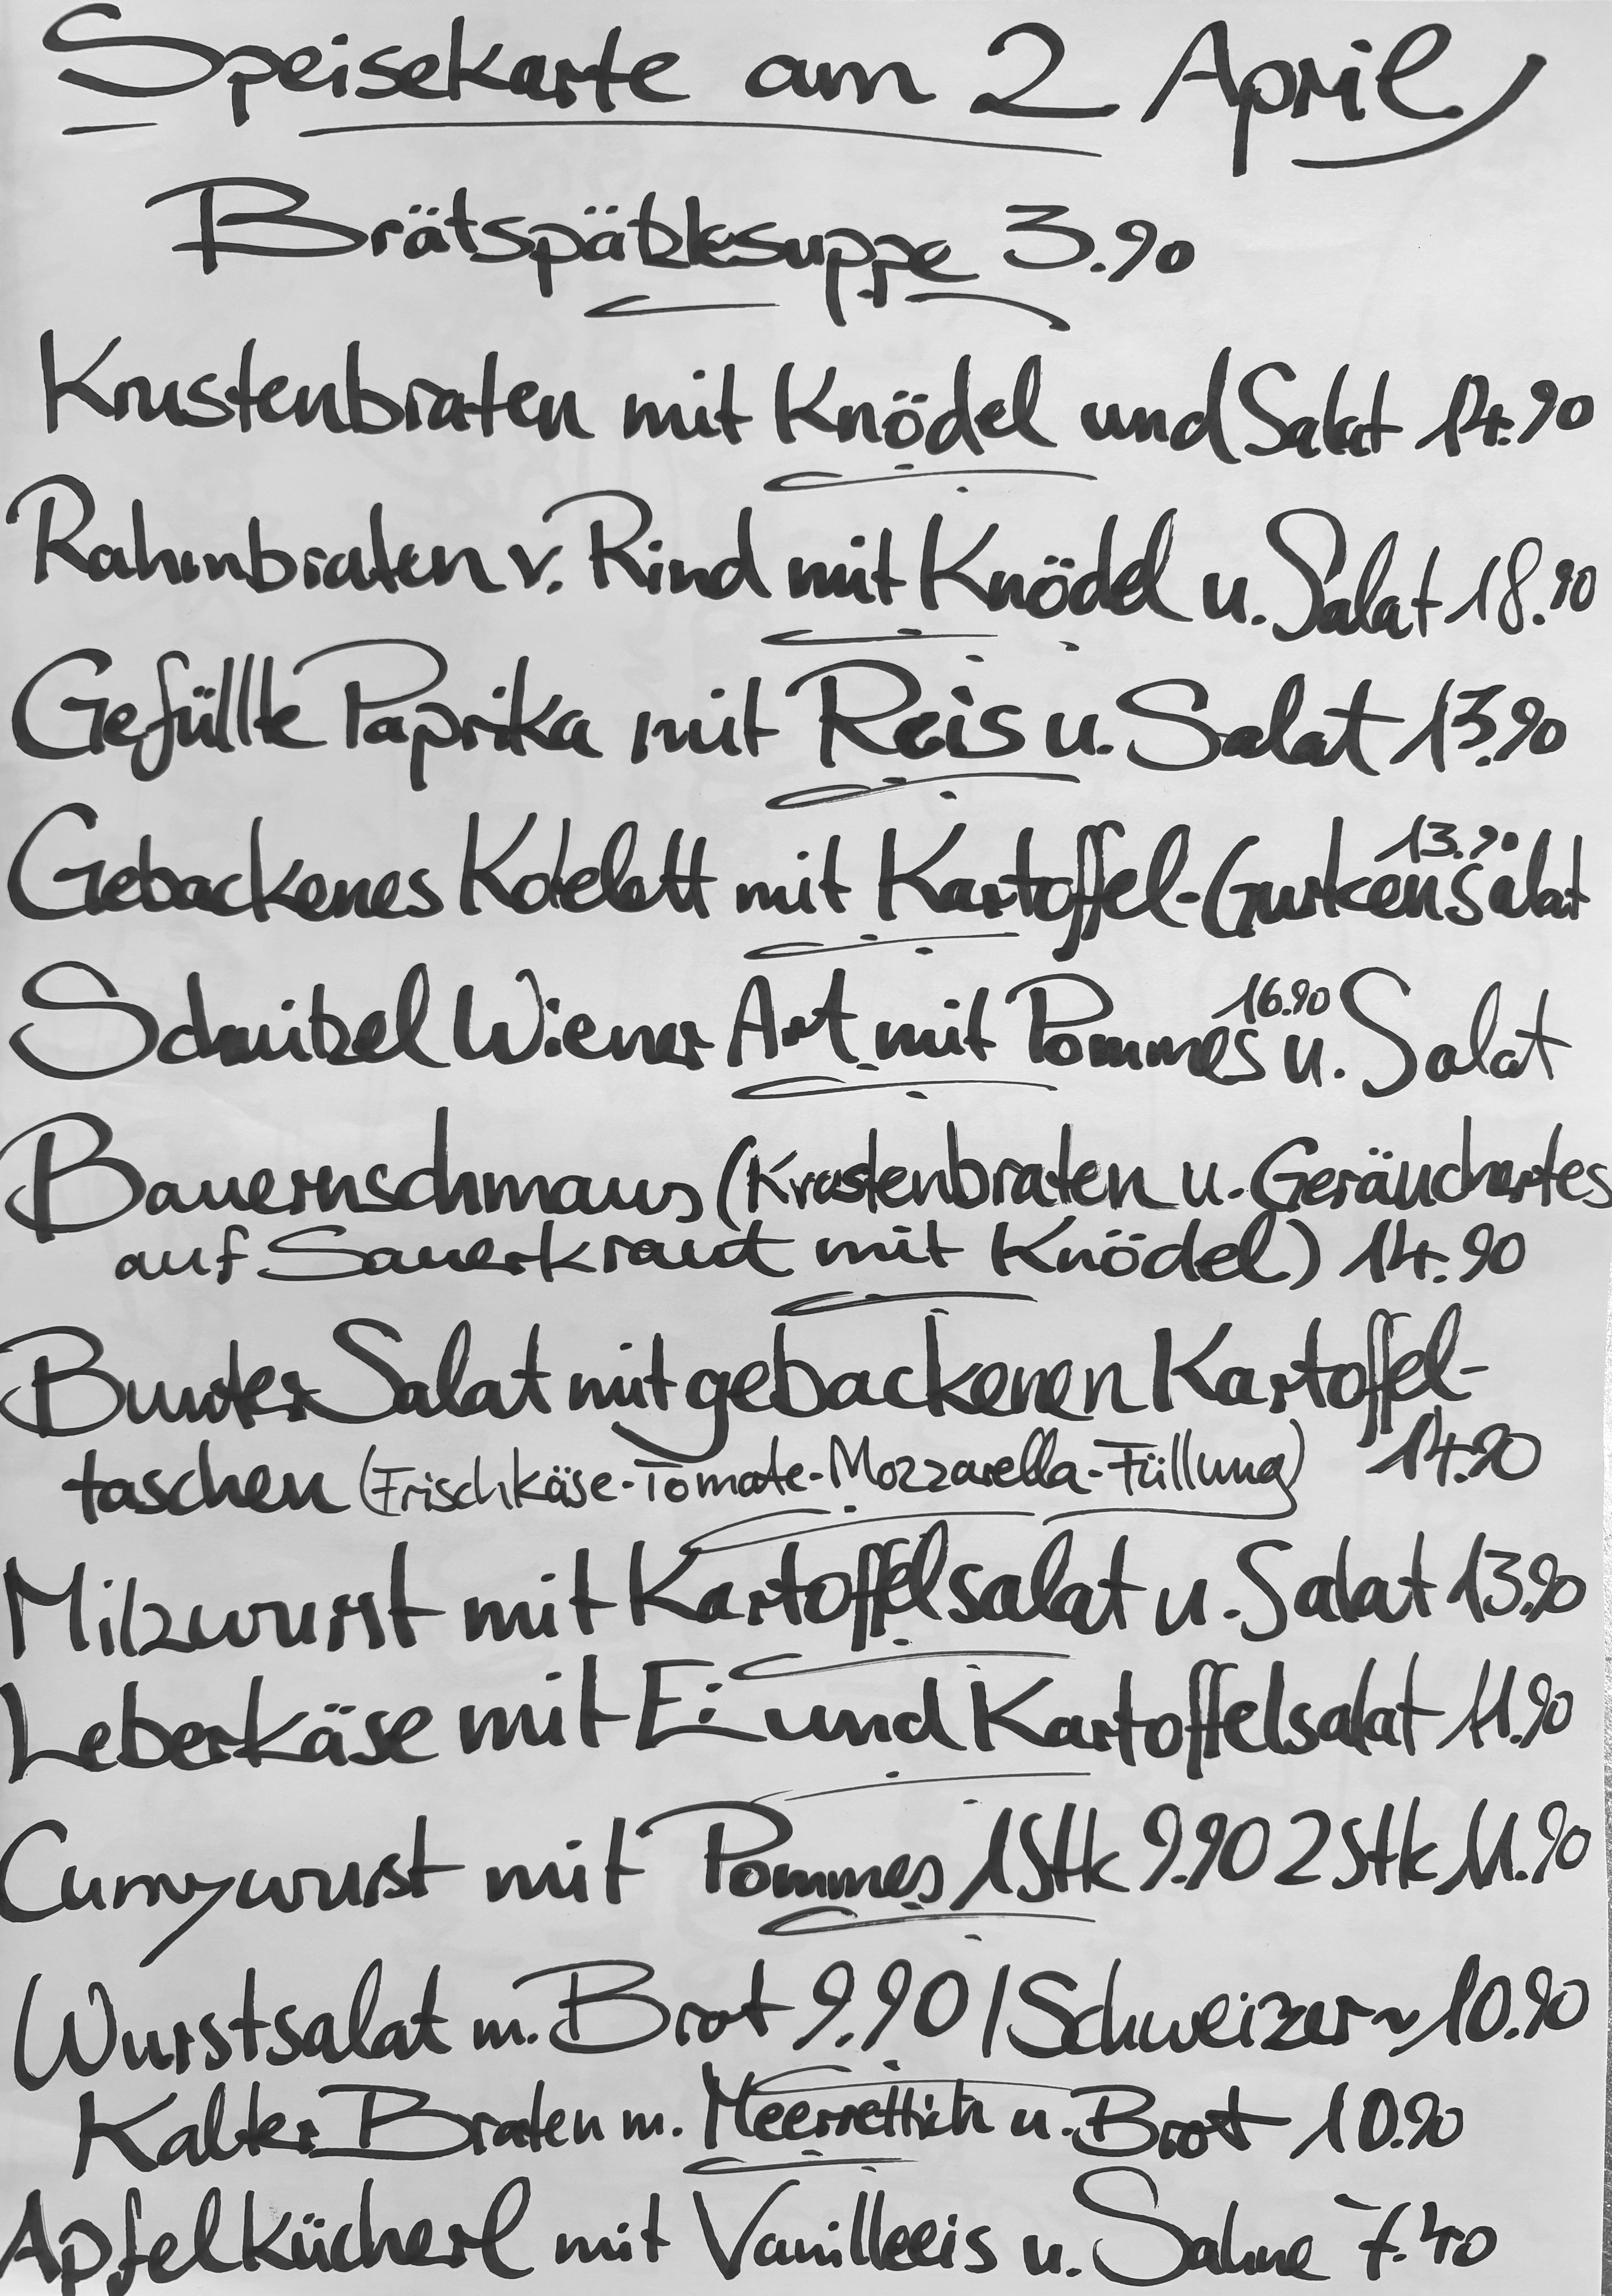 Speisekarte am 2 April
Brätspätzlesuppe 3.90
Krustenbraten mit Knödel und Salat 14.90
Rahmbraten v. Rind mit Knödel u. Salat 18.90
Gefüllte Paprika mit Reis u. Salat 13.90
Gebackenes Kotelett mit Kartoffel-Gurkensalat 13.90
Schnitzel Wiener Art mit Pommes u. Salat 16.90
Bauernschmaus (Krustenbraten u. Geräuchertes
auf Sauerkraut mit Knödel) 14.90
Bunter Salat mit gebackenen Kartoffel-
taschen (Frischkäse-Tomate-Mozzarella-Füllung) 14.90
Milzwurst mit Kartoffelsalat u. Salat 13.90
Leberkäse mit Ei und Kartoffelsalat 11.90
Currywurst mit Pommes 1Stk 9.90 2Stk 11.90
Wurstsalat m. Brot 9.90 / Schweizer ~ 10.90
Kalter Braten m. Meerrettich u. Brot 10.90
Apfelkücherl mit Vanilleeis u. Sahne 7.40